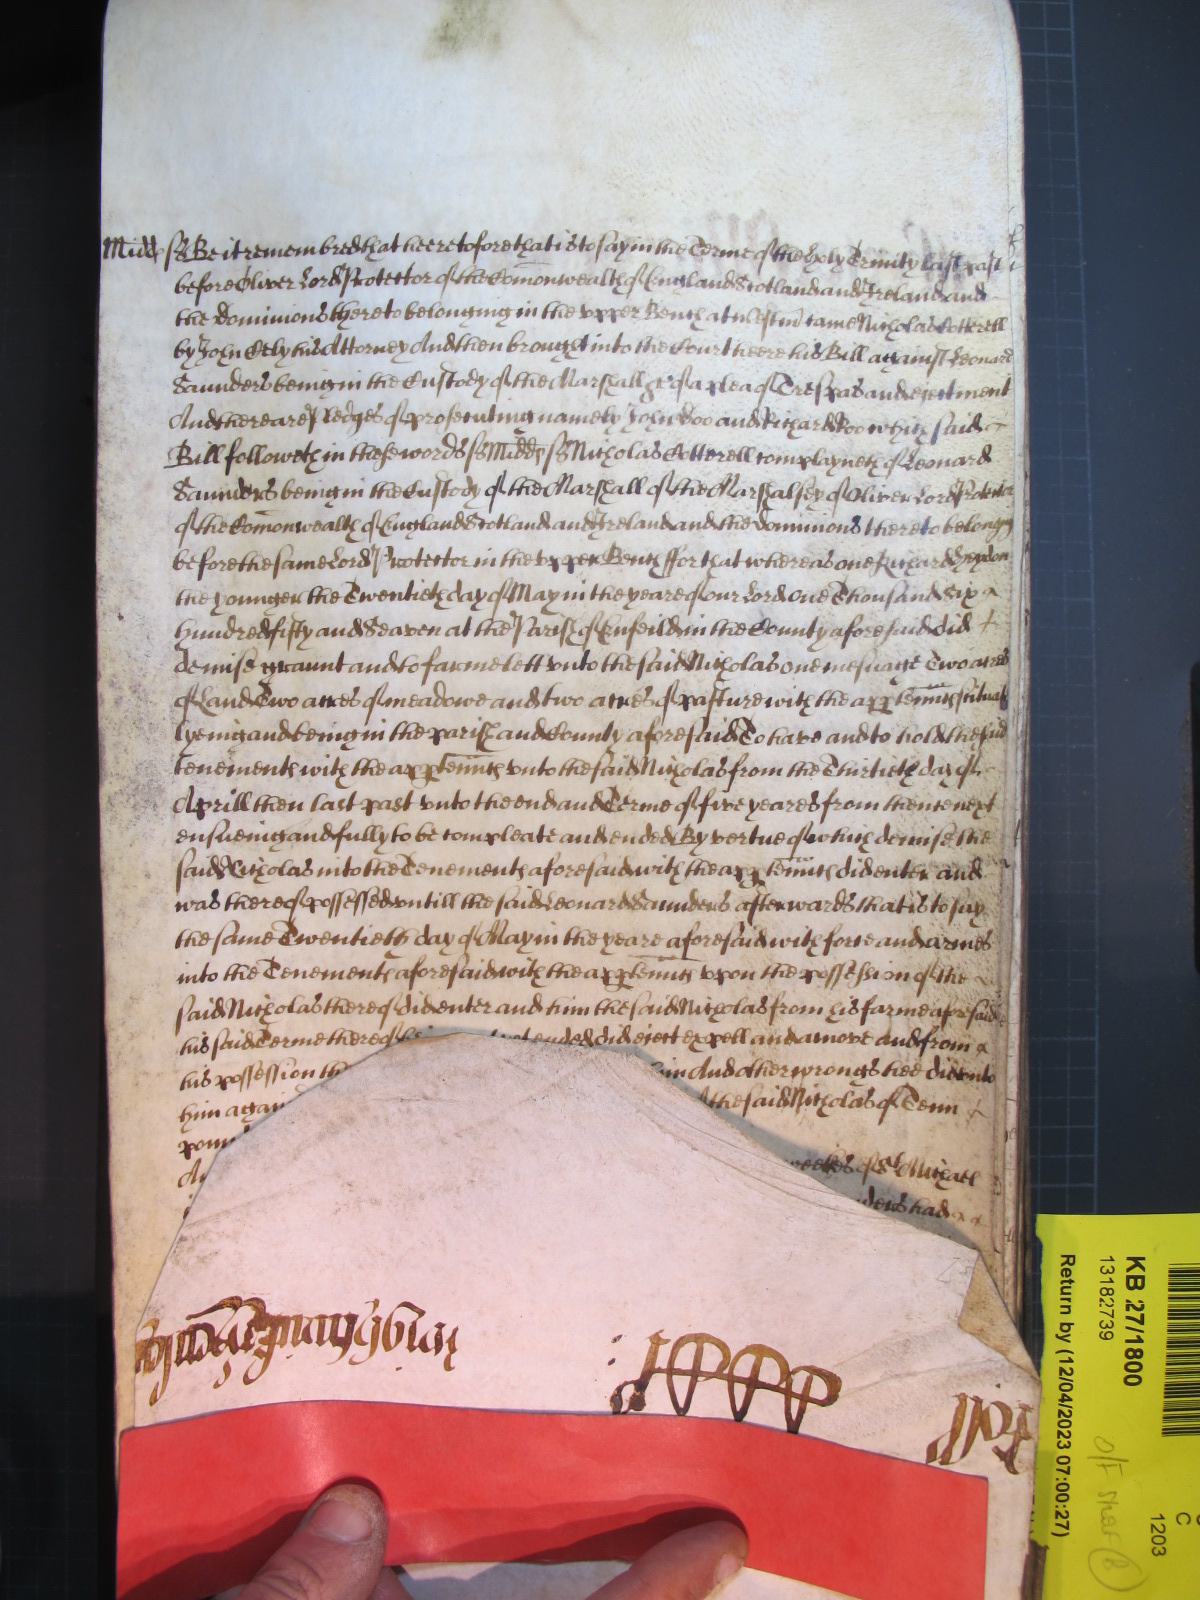 Midd ss Be it remembred that heeretofore that is to say in the Terme of the holy Trinity last past
before Oliver Lord Protector of the Com̄onwealth of England Scotland and Ireland and
the dominions thereto belonging in the vpper Bench at westm̄ came Nicholas Cotterell
by John Cely his Attorney And then brought into the Court heere his Bill against Leonard
Saunders being in the Custody of the Marshall &c of a plea of Trespas and ejectment
And there are Pledges of prosecuting namely John Doo and Richard Roo which said
Bill followeth in these words ss Midd ss Nicholas Cotterell complayneth of Leonard
Saunders being in the Custody of the Marshall of the Marshalsey of Oliver Lord Protector
of the Com̄onwealth of England Scotland and Ireland and the dominions thereto belonging
before the same Lord Protector in the vpper Bench ffor that whereas one Richard
the younger the Twentieth day of May in the yeare of our Lord One Thousand Six
hundred fifty and Seaven at the Parish of Enfeild in the County aforesaid did
demise graunt and to farme lett vnto the said Nicholas one mesuage Two acres
of Land Two acres of meadowe and two acres of pasture with the apptennncs situate
lyeing and being in the parish and County aforesaid To have and to hold the said
tenements with the apptennncs vnto the said Nicholas from the Thirtieth day of
Aprill then last past vnto the end and Terme of five yeares from thence next
ensueing and fully to be compleate and ended By vertue of which demise the
said Nicholas into the Tenements aforesaid with the apptennncs did enter and
was thereof possessed vntill the said Leonard Saunders afterwards that is to say
the same Twentieth day of May in the yeare aforesaid with force and armes
into the Tenements aforesaid with the apptennncs vpon the possession of the
said Nicholas thereof did enter and him the said Nicholas from his farme aforesaid
his said Terme thereof ended did eject expell and amove and from
his possession him And other wrongs hee did vnto
him again the said Nicholas of Tenn
weekes of St Michael
had
Roll
KB 27/1800
13182739
Return by (12/04/2023 07:00:27)
1203
C